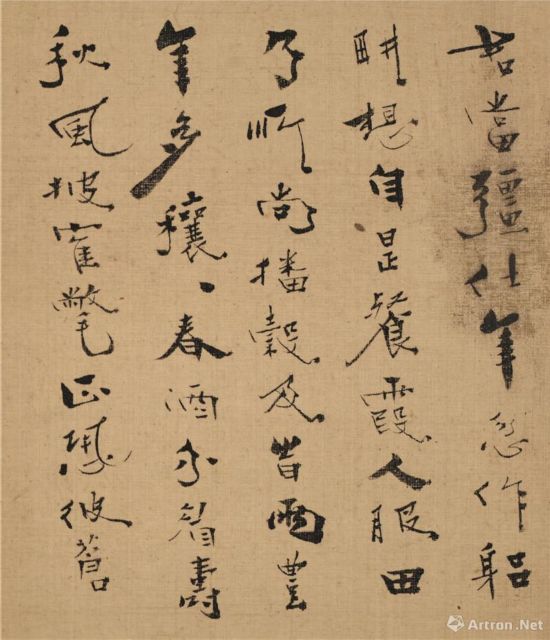 君當彊仕年忽作躳
耕想自是餐霞人服田
乃所尚播穀及旹雨豐
年多穰〻春酒介眉壽
秋風披寉氅正恐彼蒼
Artron.Net